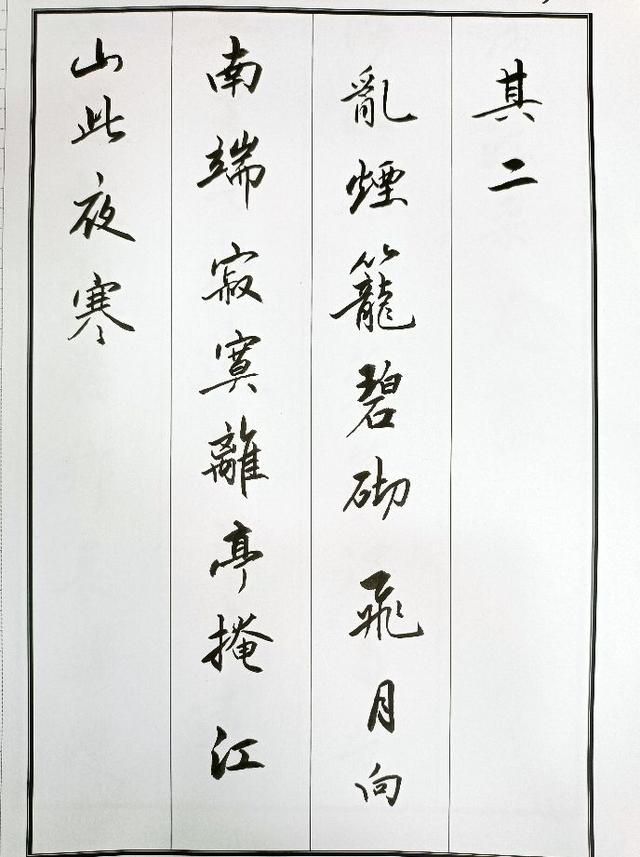 其二
亂煙籠碧砌飛月向
南端寂寞離亭掩江
山此夜寒